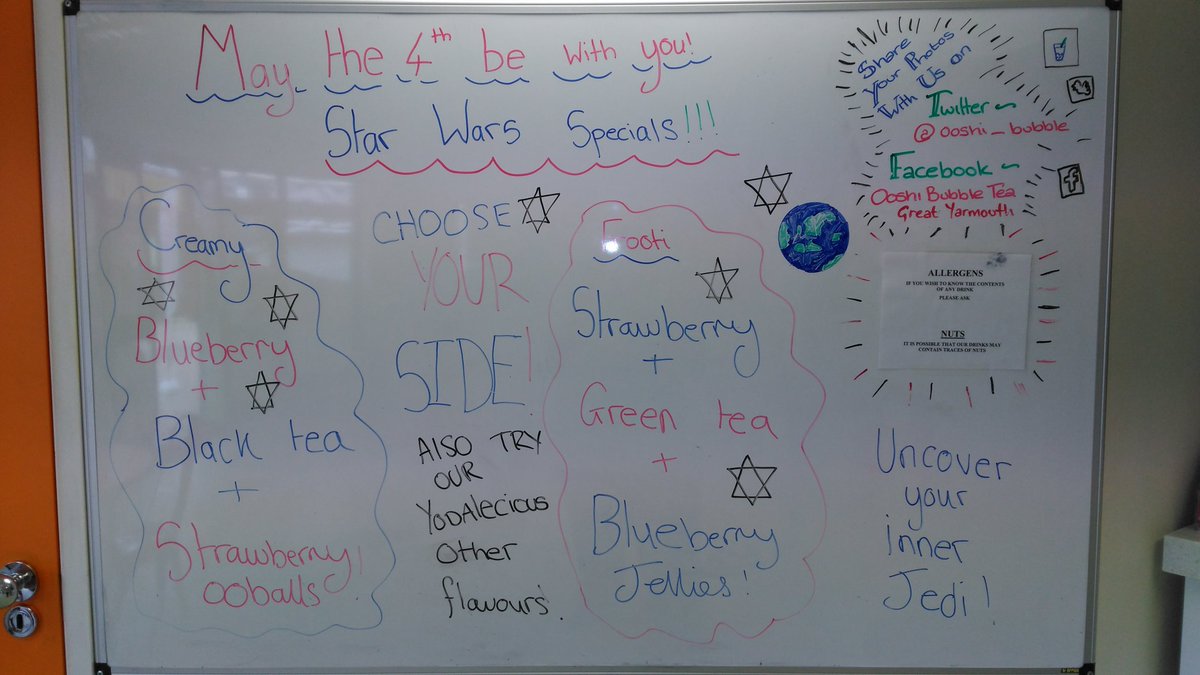 May the 4th be with you!
Star Wars Specials!!!
Creamy
Blueberry
+
Black tea
+
Strawberry!
ooballs
CHOOSE
YOUR
SIDE!
ALSO TRY
OUR
YODALECIOUS
Other
flavours.
Footi
Strawberry
+
Green tea
+
Blueberry
Jellies!
Share
Your Photos
With Us On
Twitter ~
@ooshi_bubble
Facebook ~
Ooshi Bubble Tea
Great Yarmouth
ALLERGENS
IF YOU WISH TO KNOW THE CONTENTS
OF ANY DRINK
PLEASE ASK
NUTS
IT IS POSSIBLE THAT OUR DRINKS MAY
CONTAIN TRACES OF NUTS
Uncover
your
inner
Jedi!